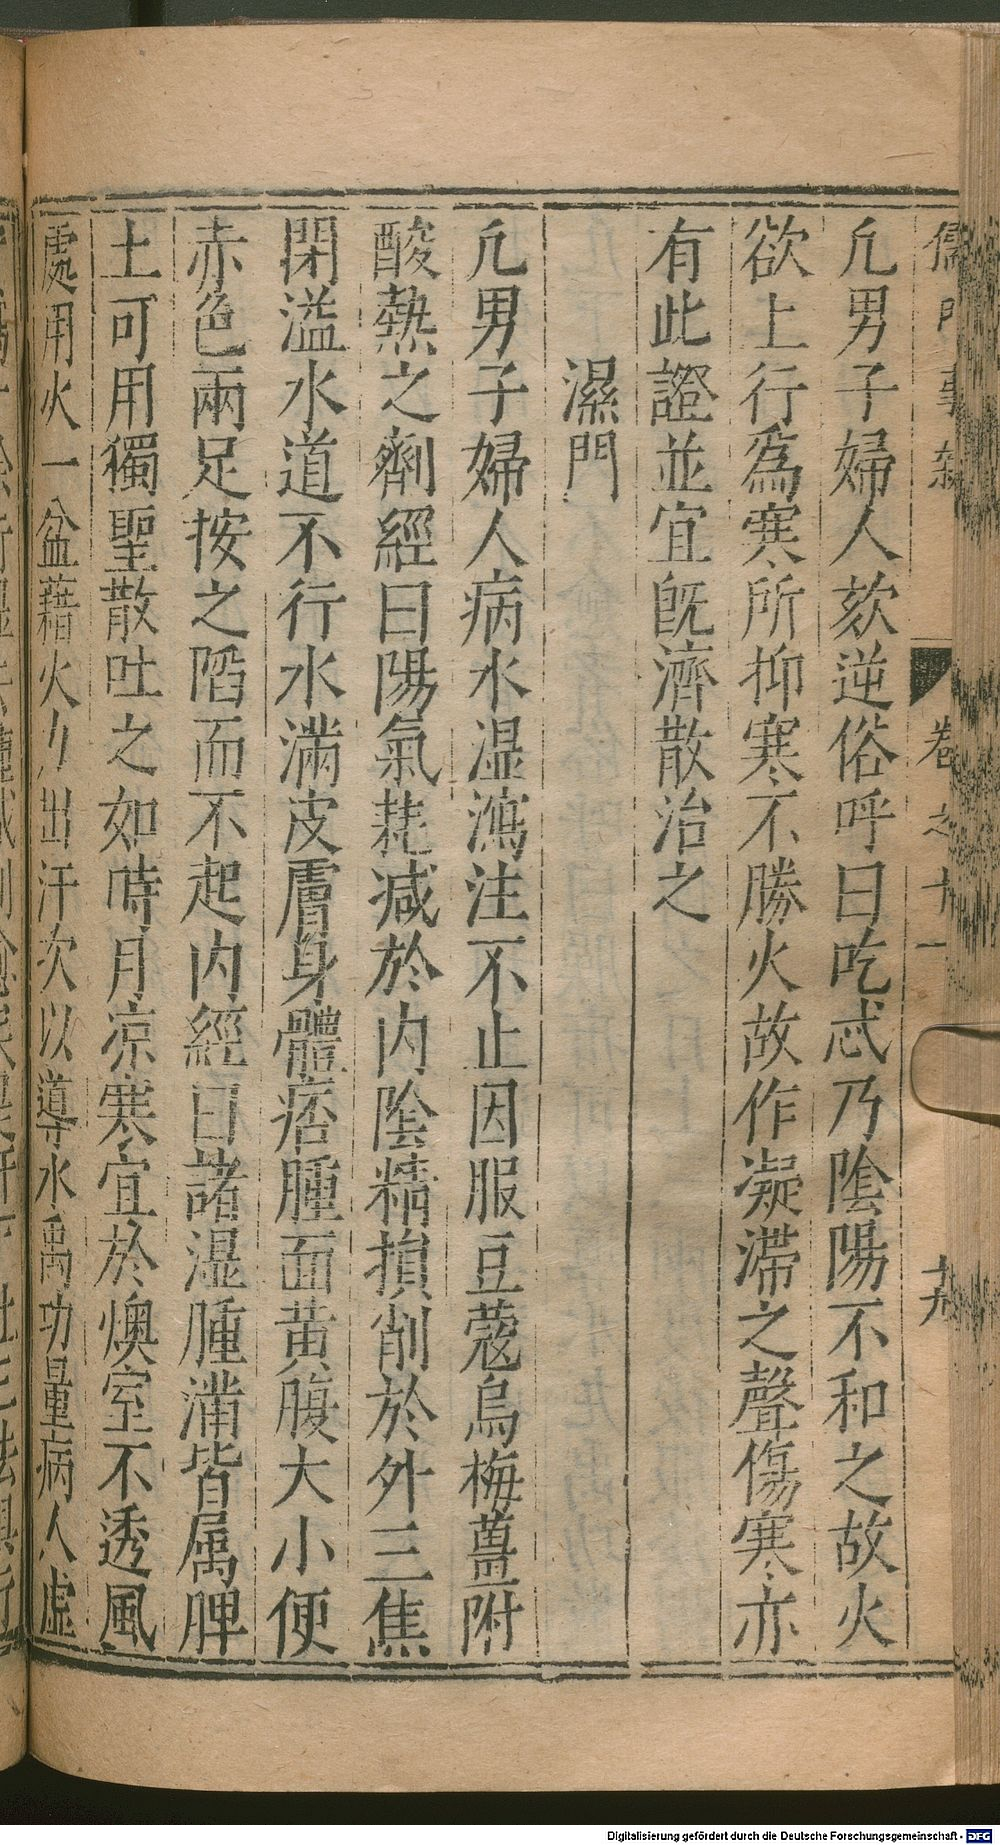 儒門事親 卷之十一 廿九
凢男子婦人欬逆俗呼曰吃忒乃陰陽不和之故火
欲上行爲寒所抑寒不勝火故作凝滯之聲傷寒亦
有此證並宜旣濟散治之
濕門
凢男子婦人病水湿瀉注不止因服豆蔻烏梅薑附
酸熱之劑經曰陽氣耗减於内陰精損削於外三焦
閉溢水道不行水滿皮膚身體痞腫面黄腹大小便
赤色兩足按之陷而不起内經曰諸湿腫滿皆属脾
土可用獨聖散吐之如時月凉寒宜於燠室不透風
處用火一盆藉火力出汗次以導水禹功量病人虛
Digitalisierung gefördert durch die Deutsche Forschungsgemeinschaft - DFG